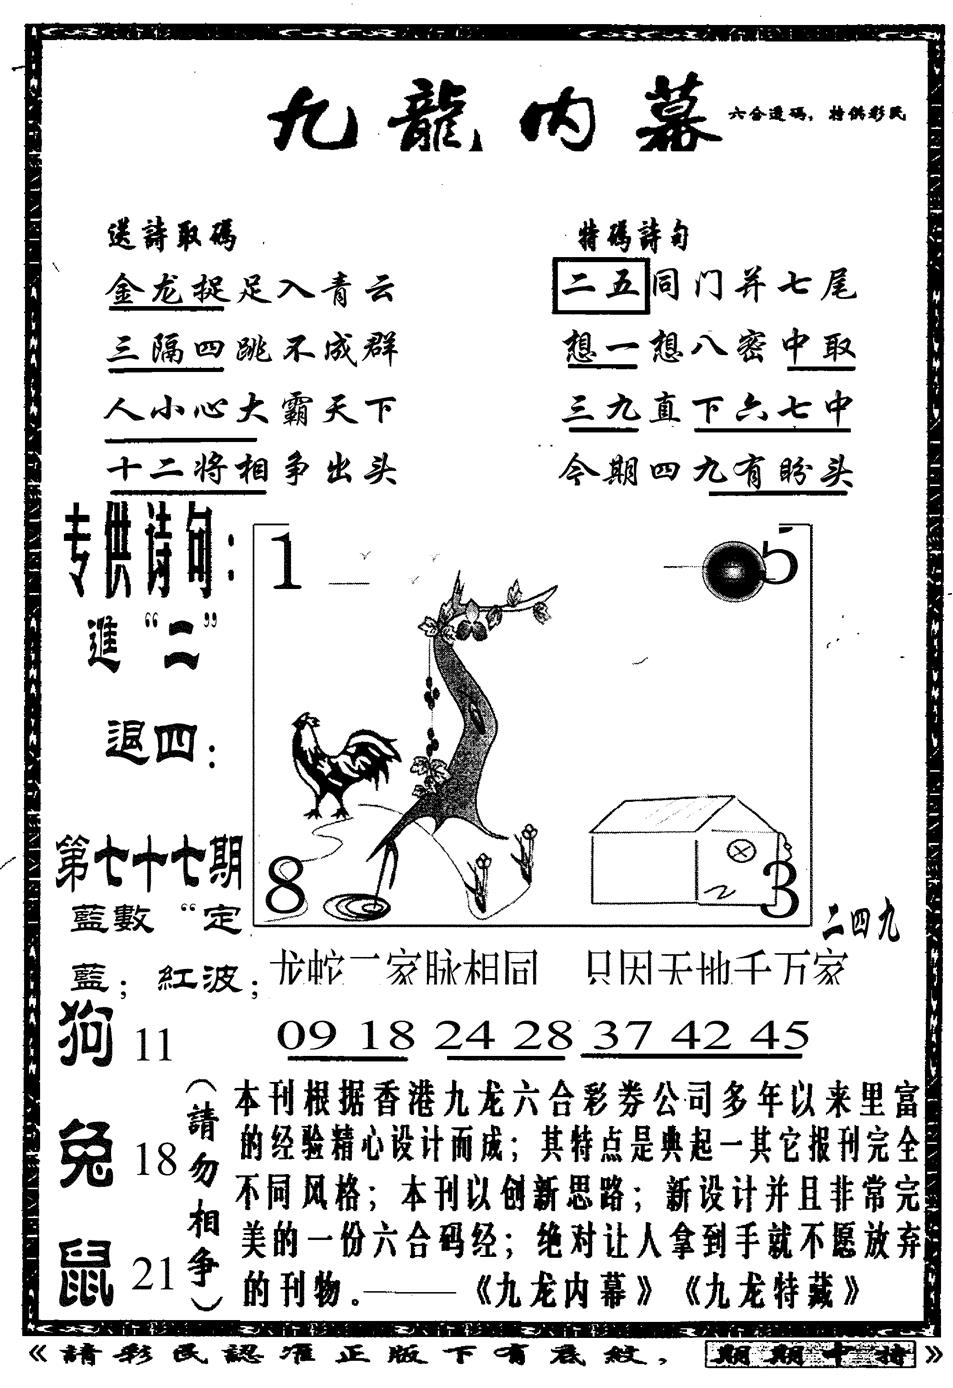 九龍内幕
六合透碼，特供彩民
送詩取碼
金龙捉足入青云
三隔四跳不成群
人小心大霸天下
十二将相争出头
特碼詩句
二五同门并七尾
想一想八密中取
三九直下六七中
今期四九有盼头
专供诗句：
進“二”
退四：
第七十七期
藍數“定
藍；紅波；
狗 11
兔 18
鼠 21
1
5
8
3
二四九
龙蛇二家脉相同 只因天地千万家
09 18 24 28 37 42 45
（請勿相争）
本刊根据香港九龙六合彩券公司多年以来里富
的经验精心设计而成；其特点是典起一其它报刊完全
不同风格；本刊以创新思路；新设计并且非常完
美的一份六合码经；绝对让人拿到手就不愿放弃
的刊物。———《九龙内幕》《九龙特藏》
《請彩民認准正版下有底紋，期期中特》